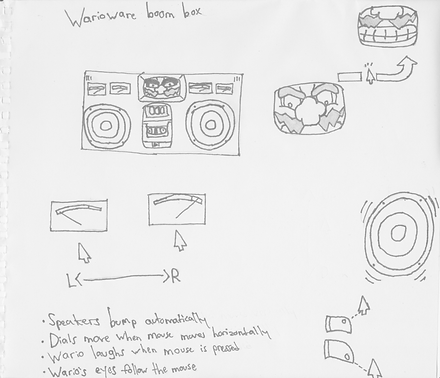 Warioware boom box
L R
• Speakers bump automatically
• Dials move when mouse moves horizontally
• Wario laughs when mouse is pressed
• Wario's eyes follow the mouse